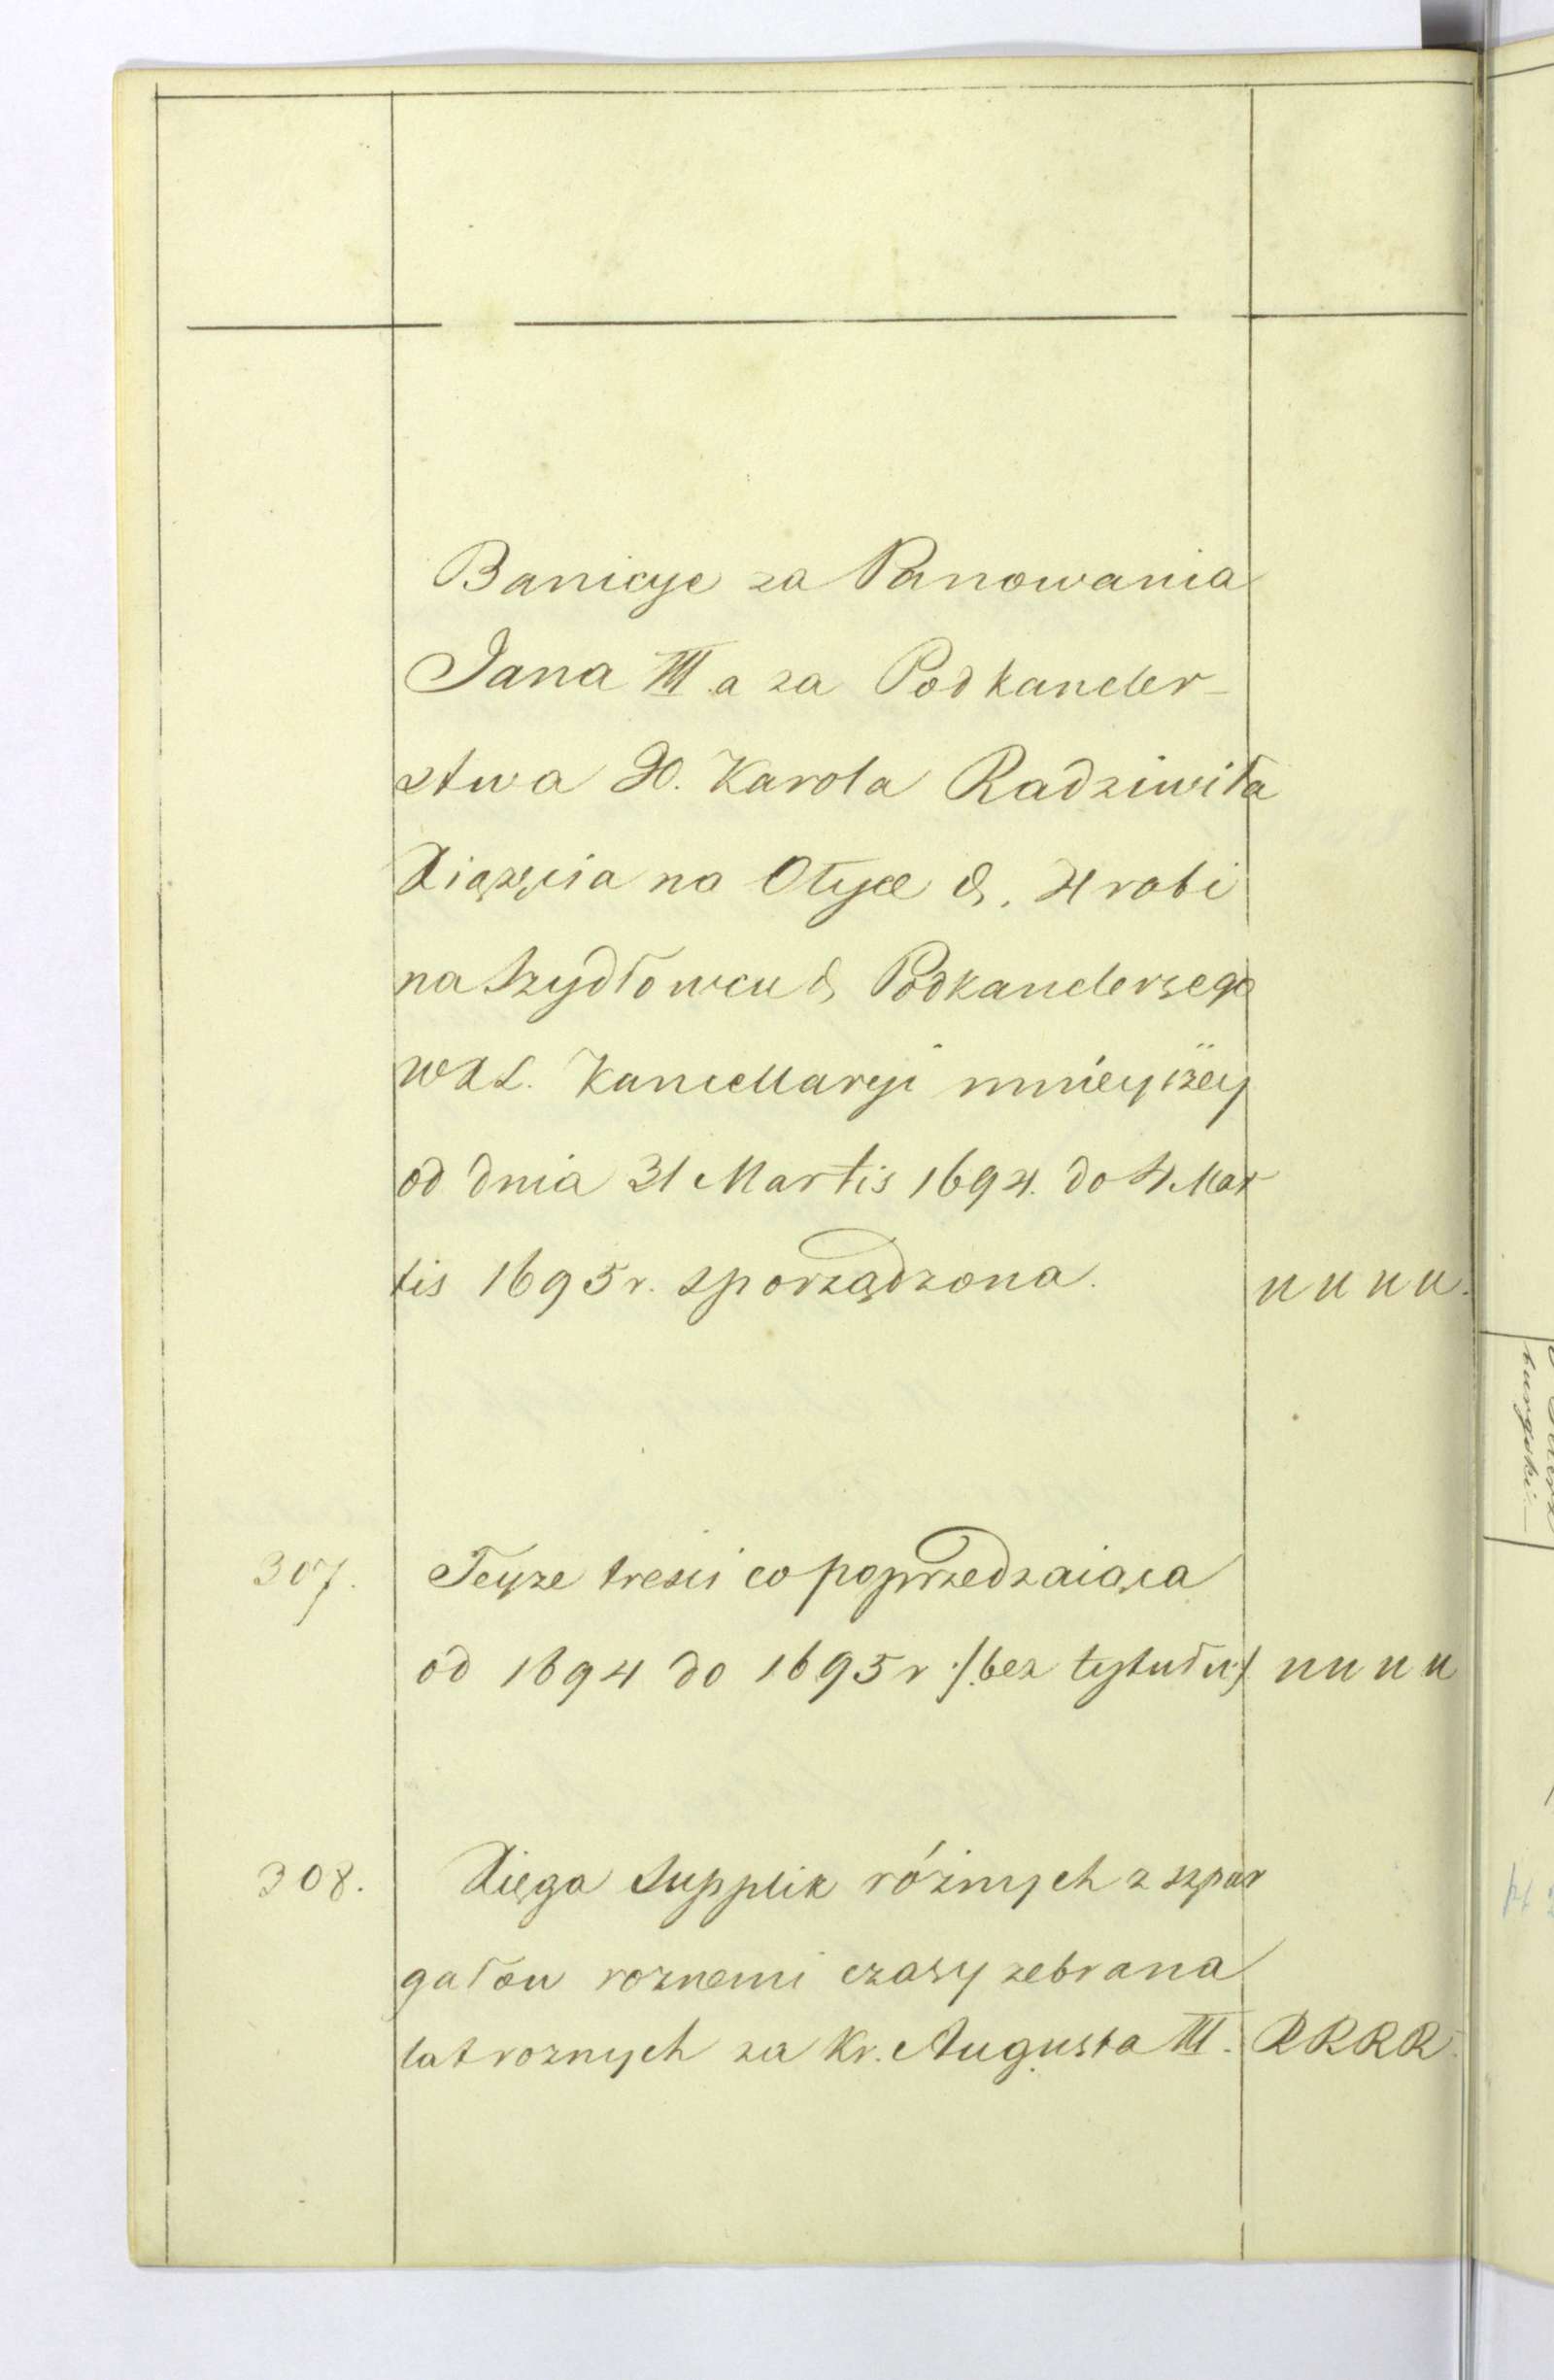 Banicye za Panowania
Jana III. a za Podkancler-
stwa JO. Karola Radziwiła
Xiążęcia na Ołyce &. Hrabi
na Szydłowcu & Podkanclerzego
WXL. Kancellaryi mnieyszey
od dnia 31 Martis 1694. do 4 Mar
tis 1695 r. sporządzona. uuuu.
307. Teyże tresci co poprzedzaiąca
od 1694 do 1695 r /:bez tytułu:/ uuuu
308. Xięga Supplik róźnych z szpar
gałow roznemi czasy zebrana
lat roznych za Kr. Augusta III. RRRR.
burgski